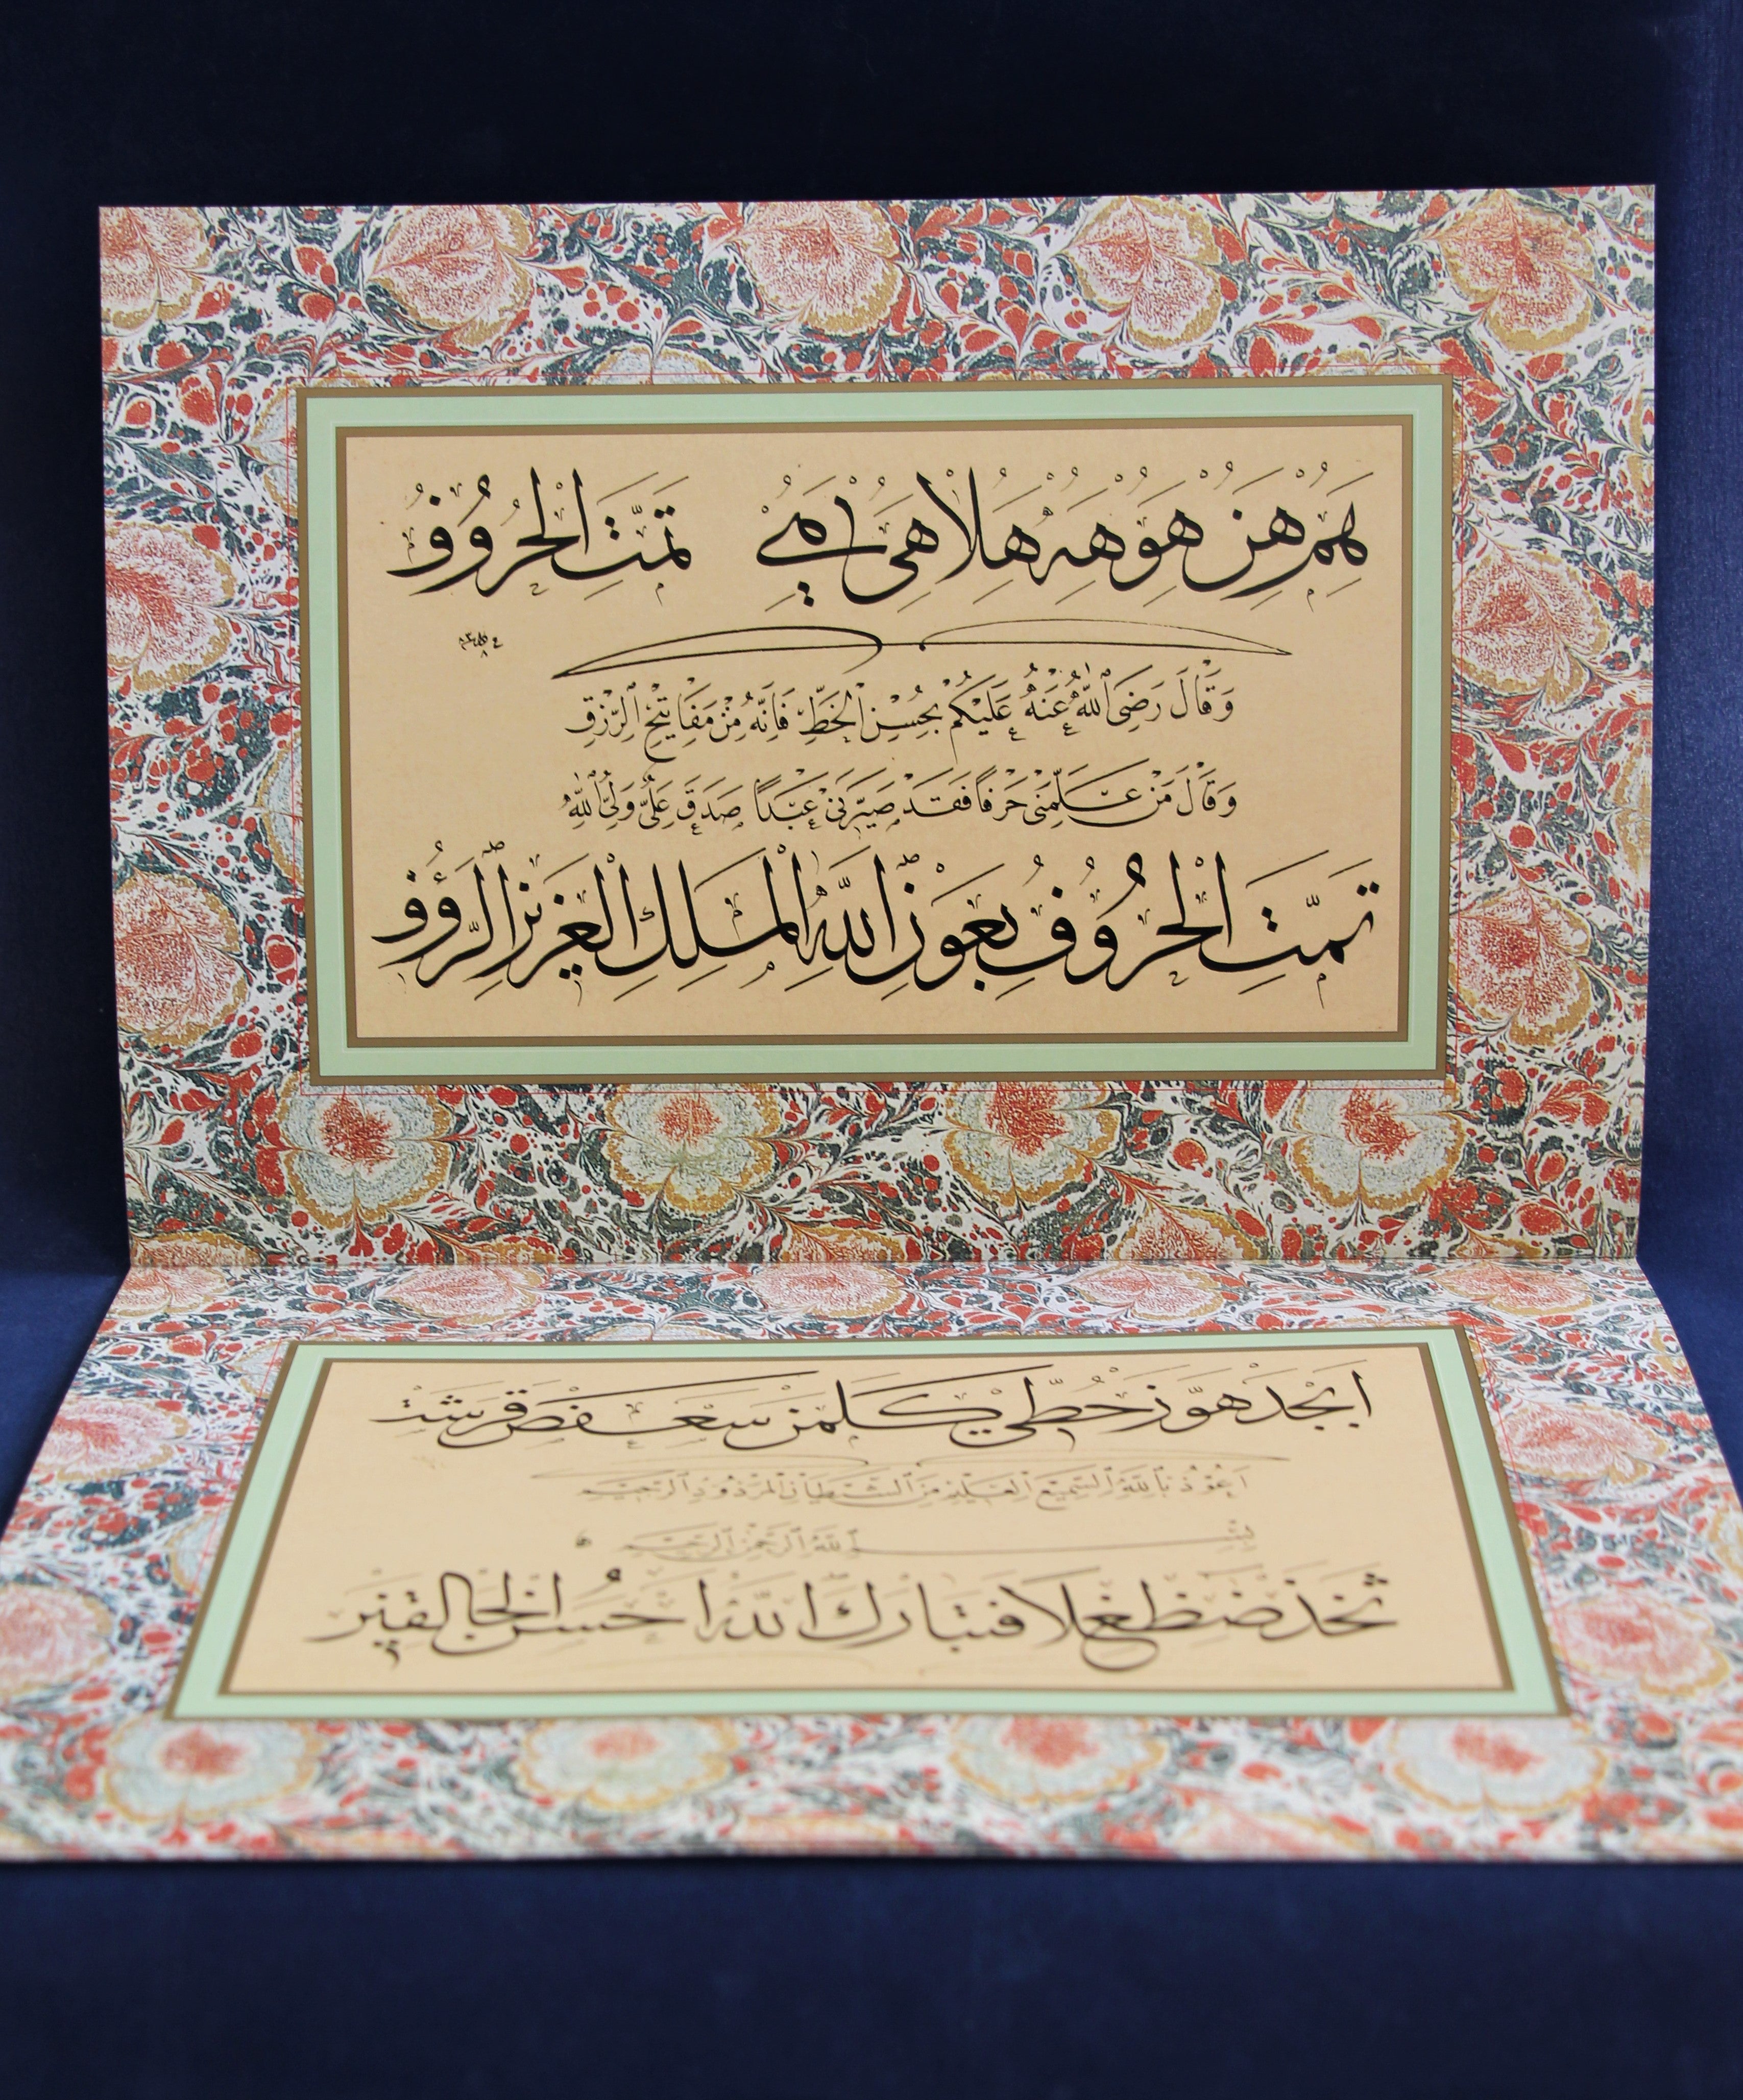 هَمُ هِنُ هَوُ هِهُ هَلَا هِى هَىُ تَمَّتِ الْحُرُوفُ
وَقَالَ رَضِىَ اللّٰهُ عَنْهُ عَلَيْكُمْ بِحُسْنِ الْخَطِّ فَإِنَّهُ مِنْ مَفَاتِيْحِ الرِّزْقِ
وَقَالَ مَنْ عَلَّمَنِىْ حَرْفًا فَقَدْ صَيَّرَنِىْ عَبْدًا صَدَقَ عَلِىٌّ وَلِىُّ اللّٰهِ
تَمَّتِ الْحُرُوفُ بِعَوْنِ اللّٰهِ الْمَلِكِ الْعَزِيزِ الرَّؤُفِ
ابجد هوز حطي كلمن سعفص قرشت
اعوذ بالله السميع العليم من الشيطان المردود الرجيم
بسم الله الرحمن الرحيم
ثخذ ضظغلا فتبارك الله احسن الخالقين